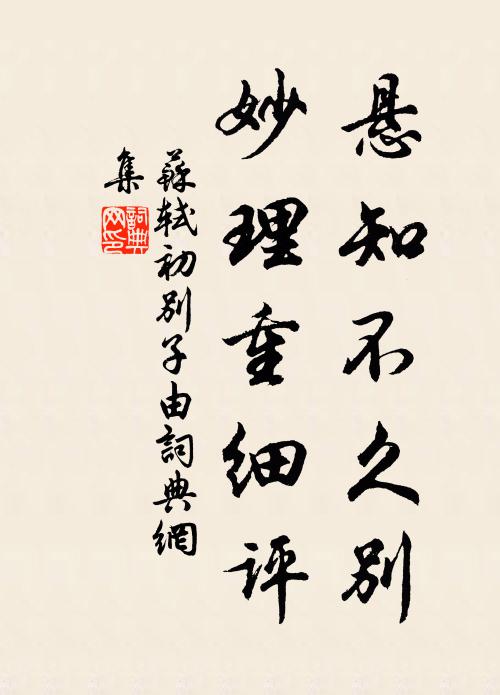 悬知不久别
妙理重细评
蘇轼初别子由詞典網
集
詞典
网印